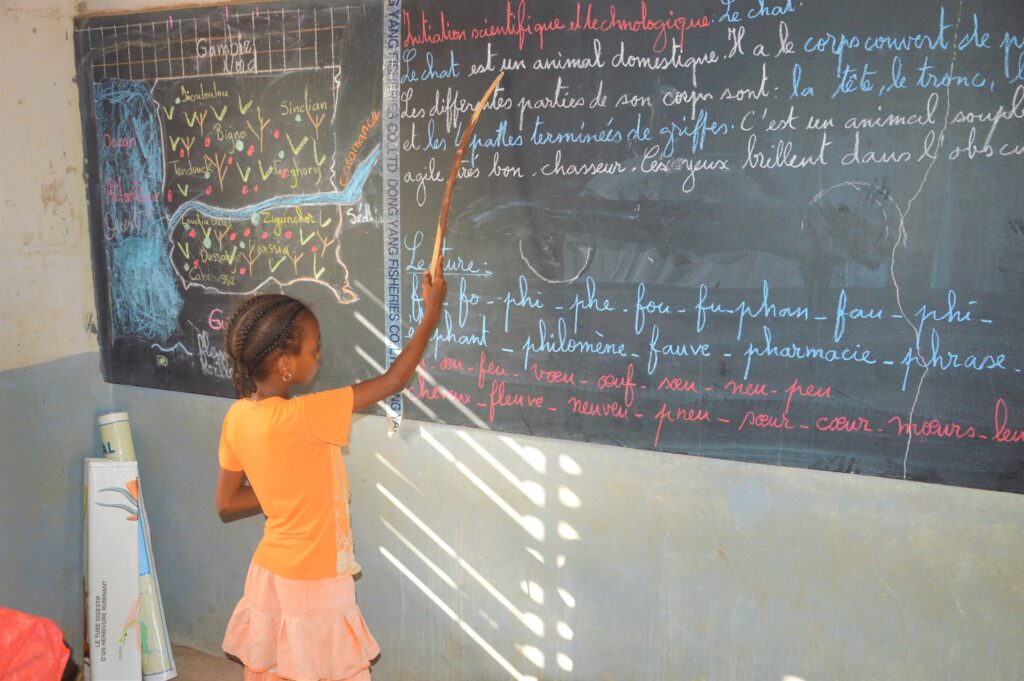 Gambie
Nord
Diouloulou
Sindian
Bignona
Tendouck
Tenghory
Casamance
Océan
Atlantique
Ouest
Ziguinchor
Sédhiou
Cabrousse
YANG FISHERIES CO.,LTD DONG YANG FISHERIES CO.
Initiation scientifique et technologique : Le chat.
Le chat est un animal domestique. Il a le corps couvert de
Les différentes parties de son corps sont : la tête, le tronc,
et les 4 pattes terminées de griffes. C'est un animal souple
agile très bon chasseur. Ces yeux brillent dans l'obscu
Lecture :
fo - phi - phe - fou - fu - phan - fau - phi -
éléphant - philomène - fauve - pharmacie - phrase.
œu - feu - vœu - œuf - sœu - neu - peu
cheveux - fleuve - neuveu - pneu - sœur - cœur - mœurs - leu
AL
LE TUBE DIGESTIF
D'UN HERBIVORE RUMINANT